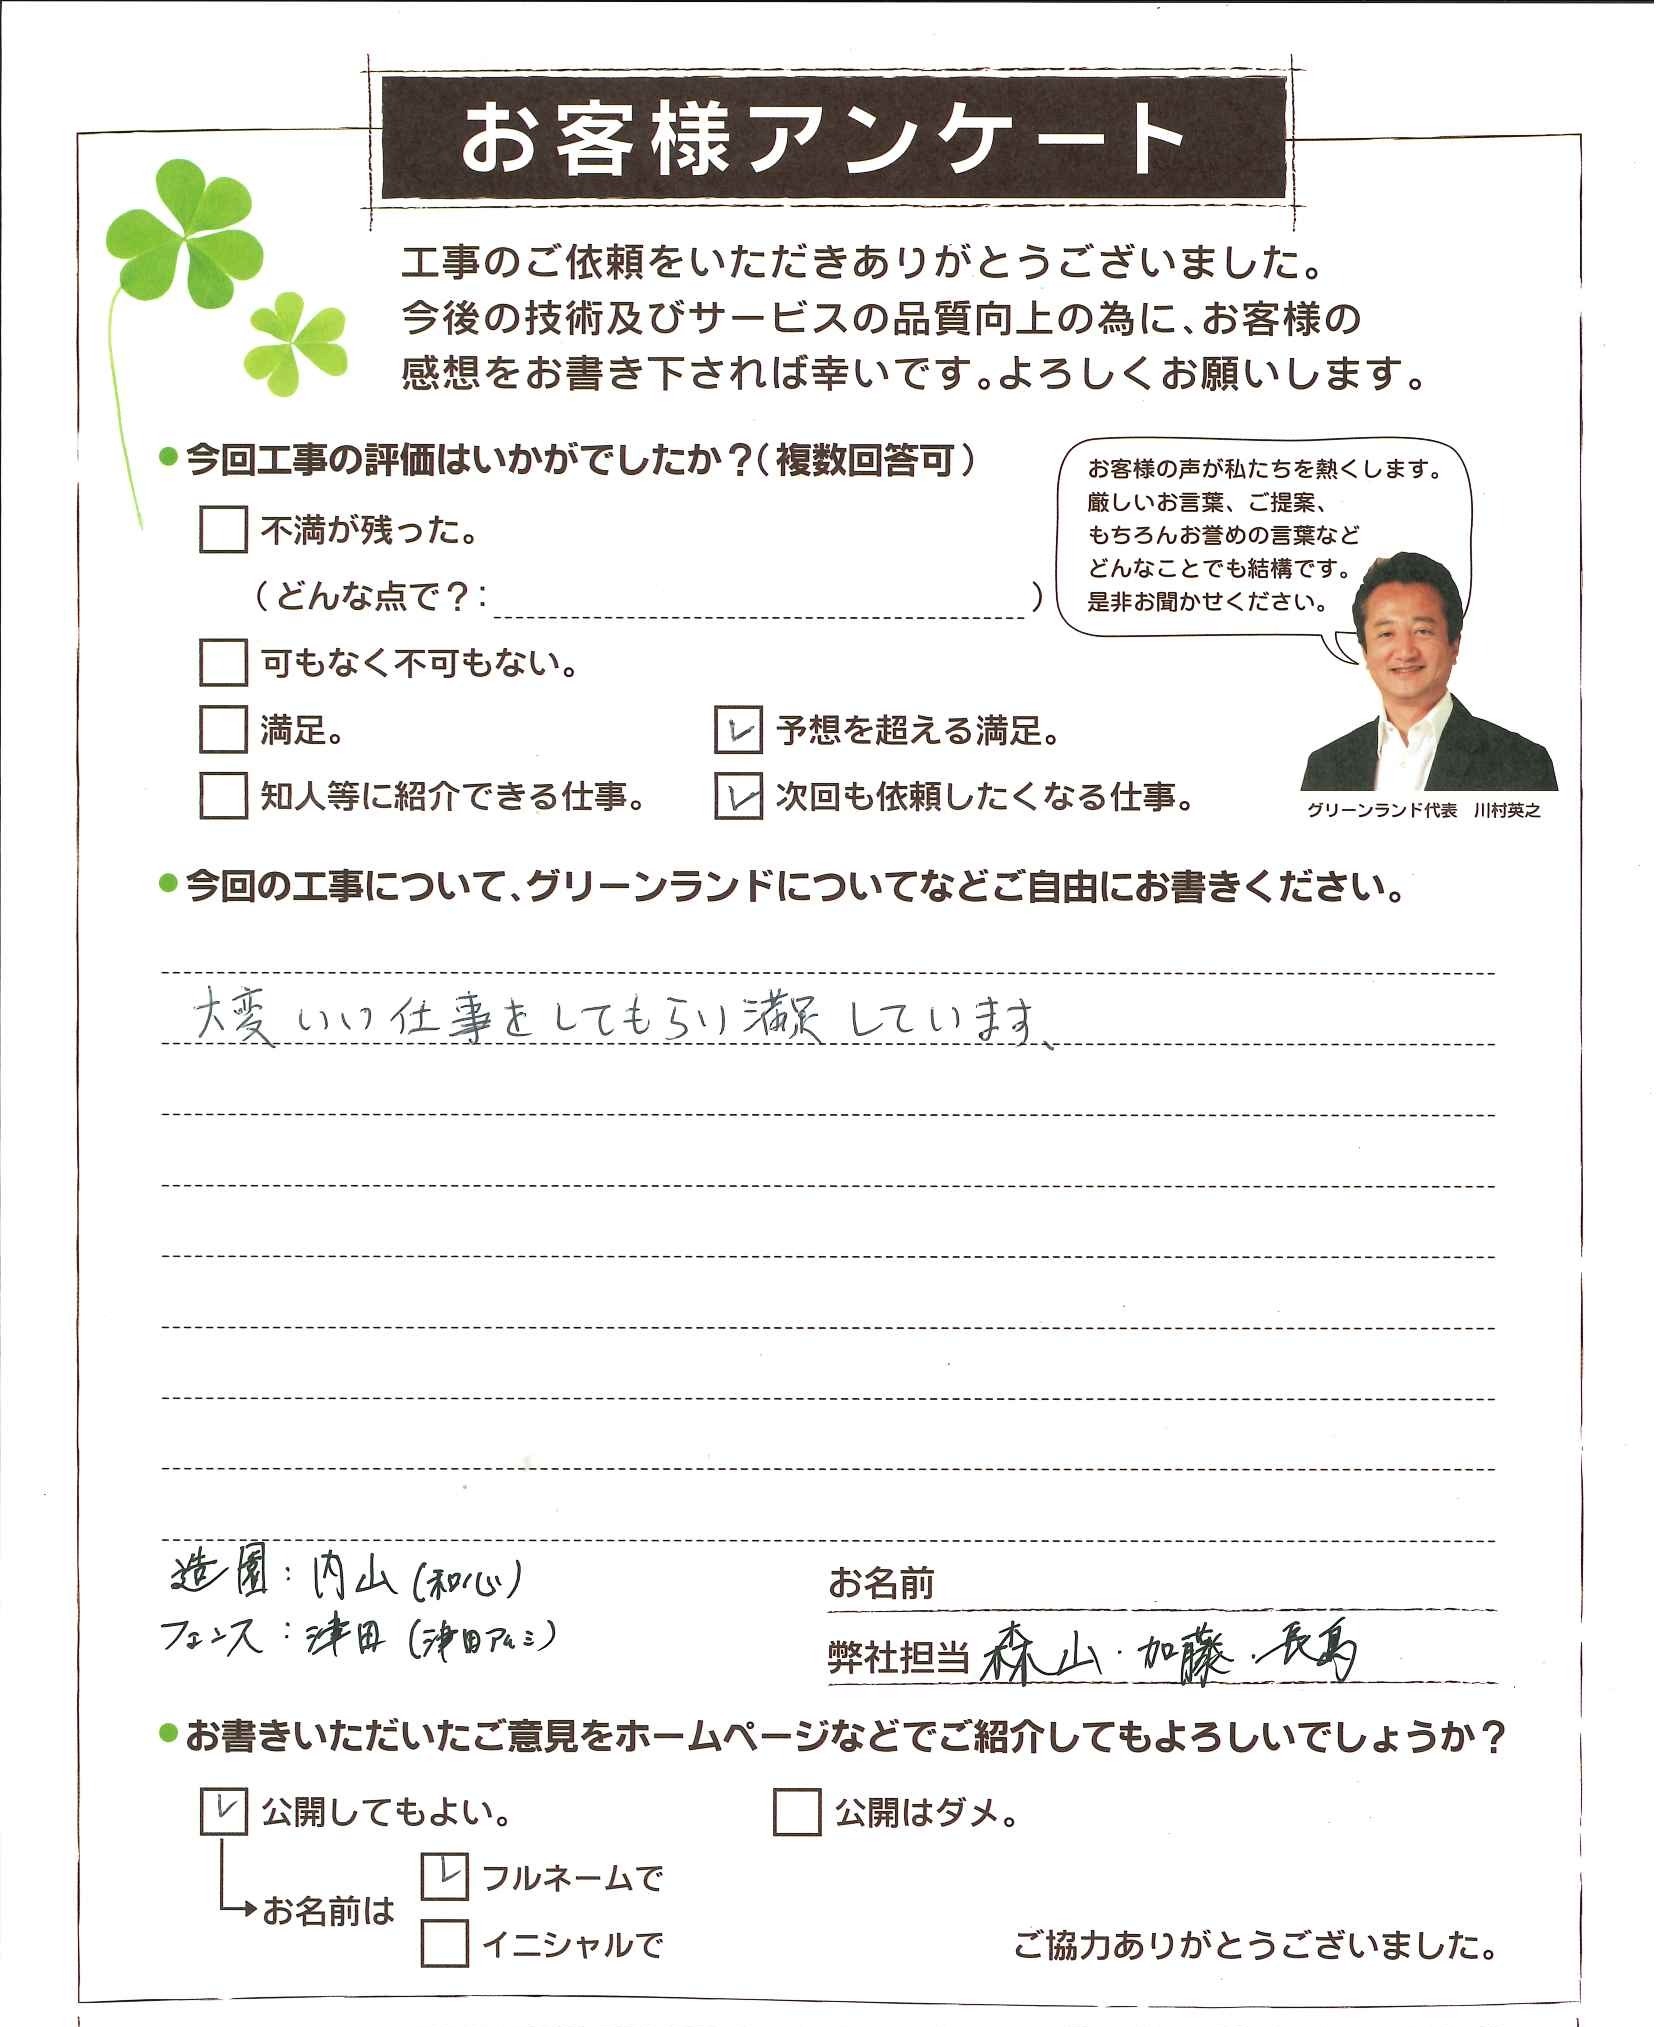 お客様アンケート
工事のご依頼をいただきありがとうございました。
今後の技術及びサービスの品質向上の為に、お客様の
感想をお書き下されば幸いです。よろしくお願いします。
●今回工事の評価はいかがでしたか？（複数回答可）
不満が残った。
（どんな点で？：　）
可もなく不可もない。
満足。
予想を超える満足。
知人等に紹介できる仕事。
次回も依頼したくなる仕事。
お客様の声が私たちを熱くします。
厳しいお言葉、ご提案、
もちろんお誉めの言葉など
どんなことでも結構です。
是非お聞かせください。
グリーンランド代表　川村英之
●今回の工事について、グリーンランドについてなどご自由にお書きください。
大変いい仕事をしてもらい満足しています、
造園：内山（和心）
フェンス：津田（津田アルミ）
お名前
弊社担当 森山・加藤・長島
●お書きいただいたご意見をホームページなどでご紹介してもよろしいでしょうか？
公開してもよい。
公開はダメ。
お名前は
フルネームで
イニシャルで
ご協力ありがとうございました。